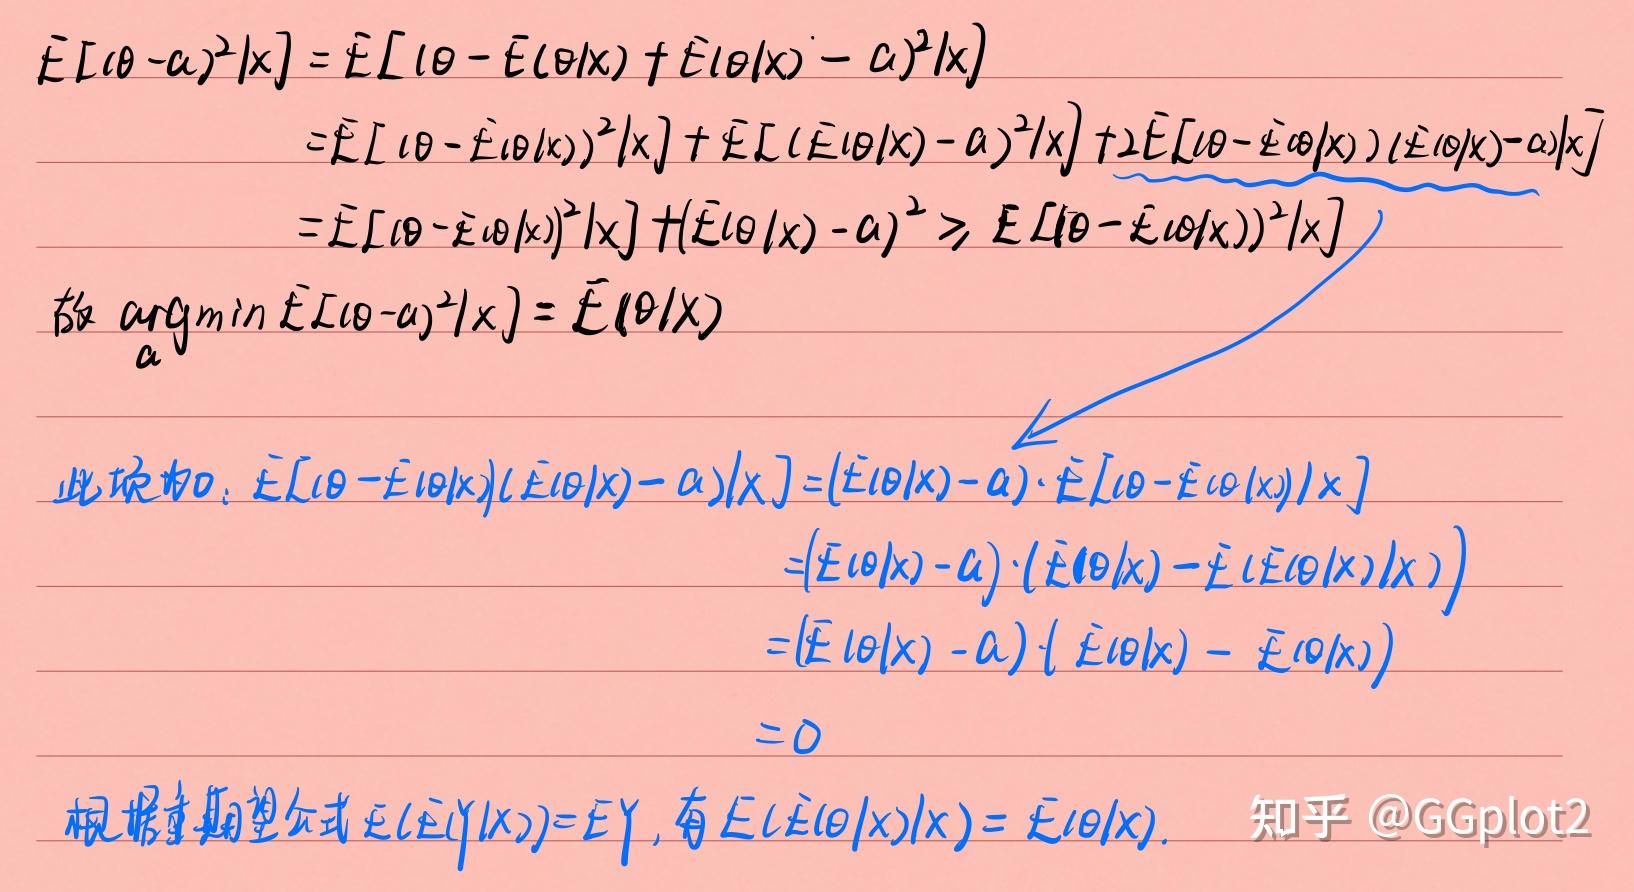 E[(θ-a)²|x] = E[(θ - E(θ|x) + E(θ|x) - a)²|x]
= E[(θ-E(θ|x))²|x] + E[(E(θ|x)-a)²|x] + 2E[(θ-E(θ|x))(E(θ|x)-a)|x]
= E[(θ-E(θ|x))²|x] + (E(θ|x)-a)² ≥ E[(θ-E(θ|x))²|x]
故 argmin E[(θ-a)²|x] = E(θ|x)
a
此项为0: E[(θ-E(θ|x))(E(θ|x)-a)|x] = (E(θ|x)-a)·E[(θ-E(θ|x))|x]
= (E(θ|x)-a)·(E(θ|x)-E(E(θ|x)|x))
= (E(θ|x)-a)·(E(θ|x) - E(θ|x))
= 0
根据重期望公式 E(E(Y|X))=EY, 有 E(E(θ|x)|x) = E(θ|x).
知乎 @GGplot2